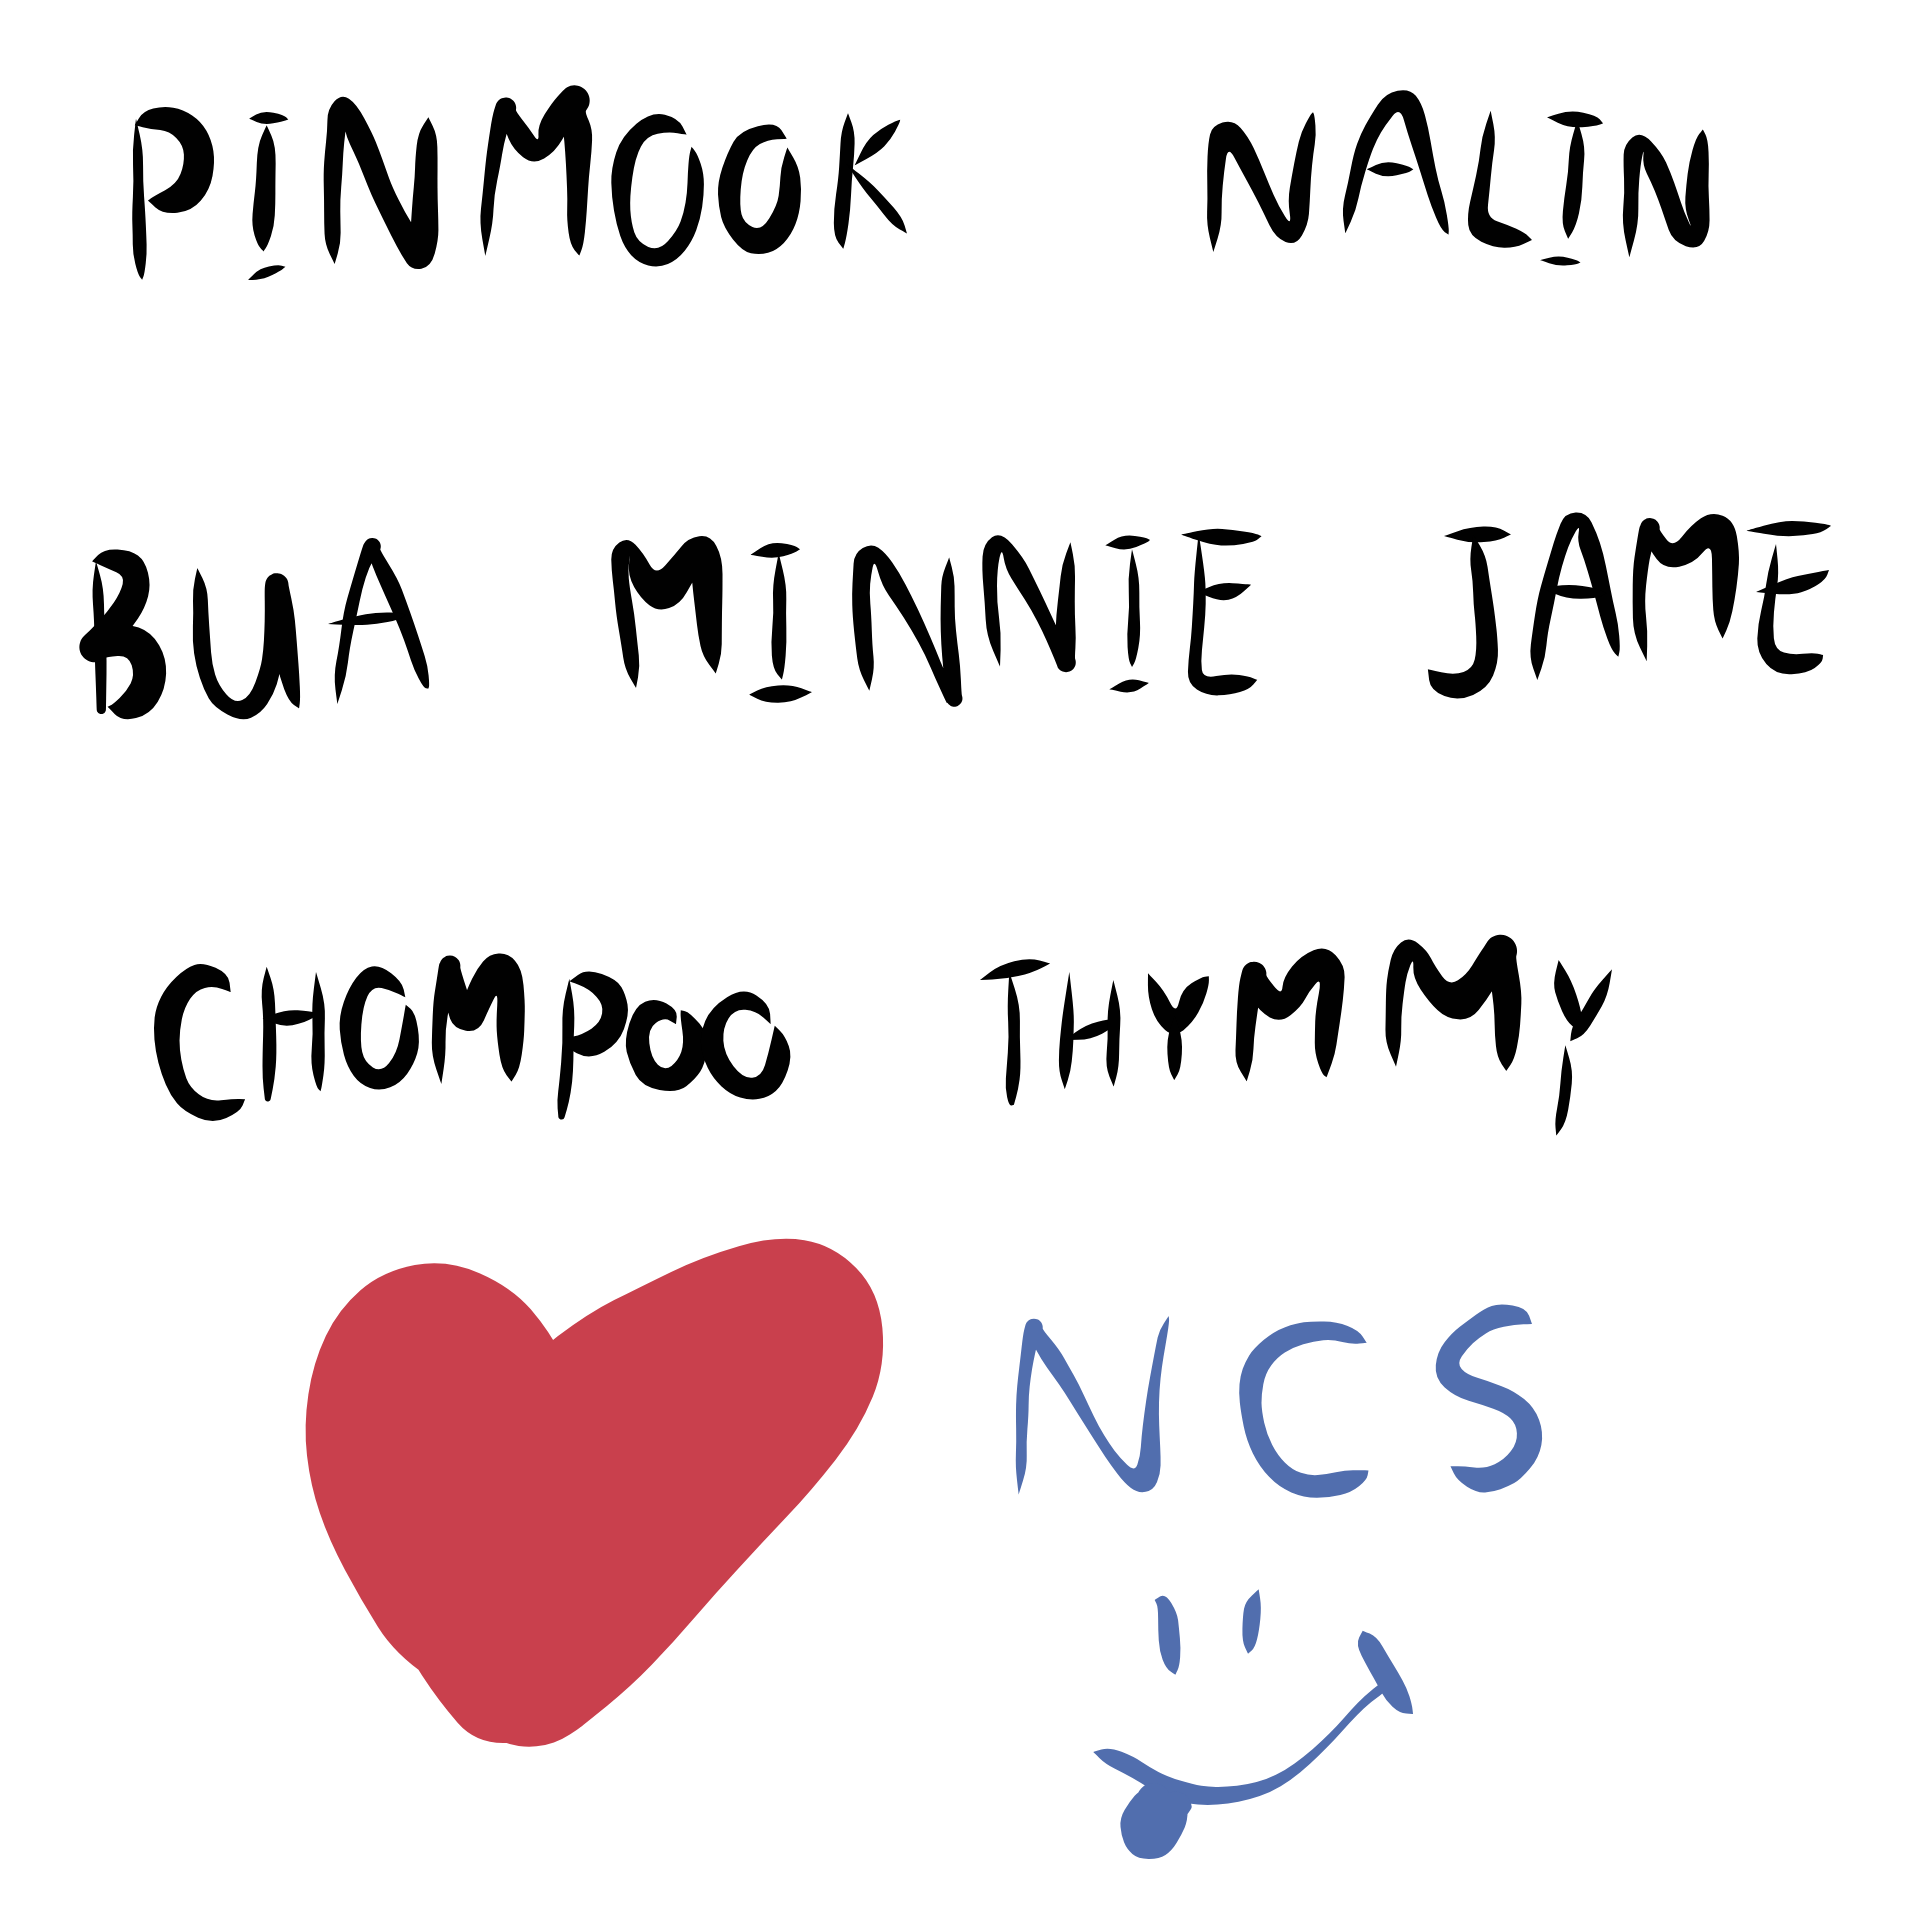 PINMOOK NALIN
BUA MINNIE JAME
CHOMPOO THYMMY
NCS